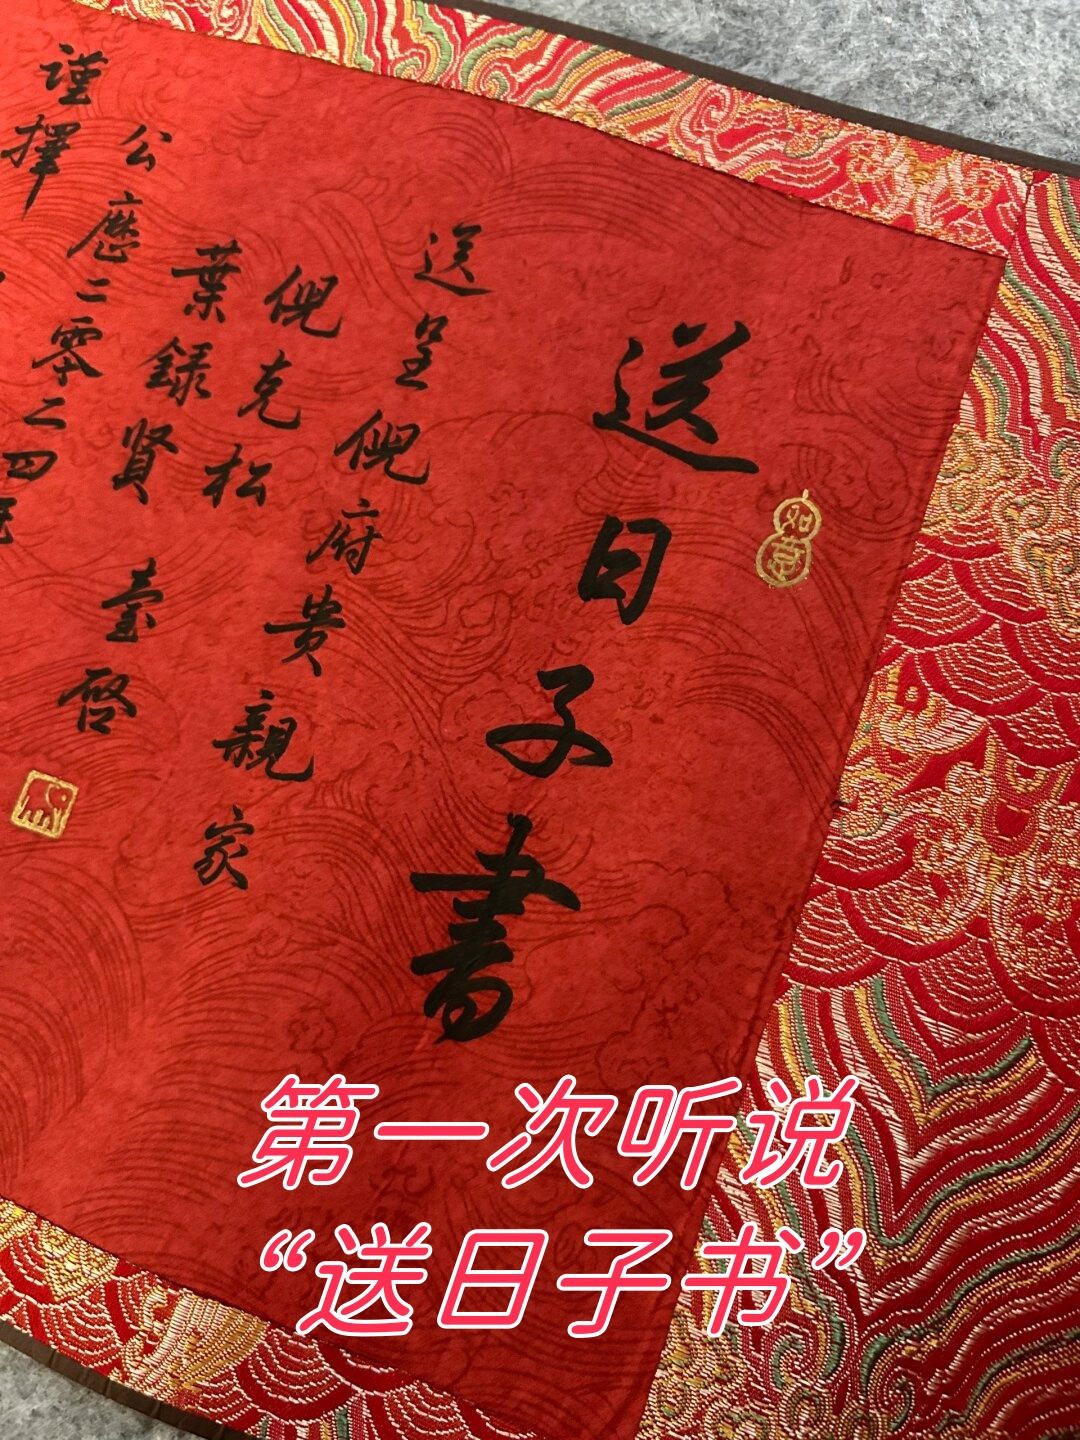 送日子書
如意
送呈倪府贵親家
倪克松
葉錄賢 臺啓
公歷二零二四
谨擇
第一次听说
“送日子书”